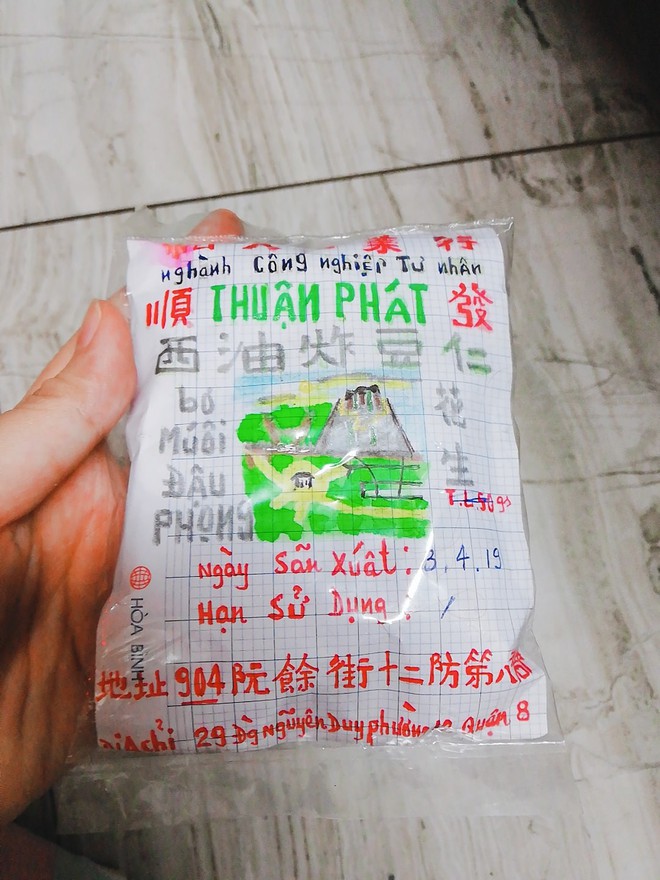 業 行
nghành Công nghiệp Tư nhân
順 THUẬN PHÁT 發
西油炸豆仁
bo
Muối
ĐẬU
PHỌNG
花
生
T.L:50gs
Ngày Sãn Xuất: 3.4.19
Hạn Sử Dụng: /
HÒA BÌNH
地址 904 阮餘街十二防第八郡
ĐiAchỉ 29 Đg nguyễn Duy phường 12 Quận 8